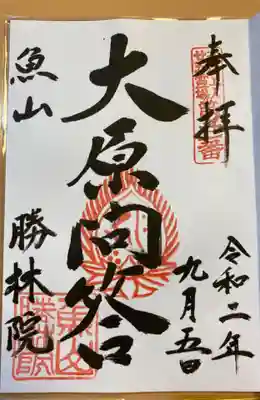 奉拝
令和二年
九月五日
大原問答
魚山
勝林院